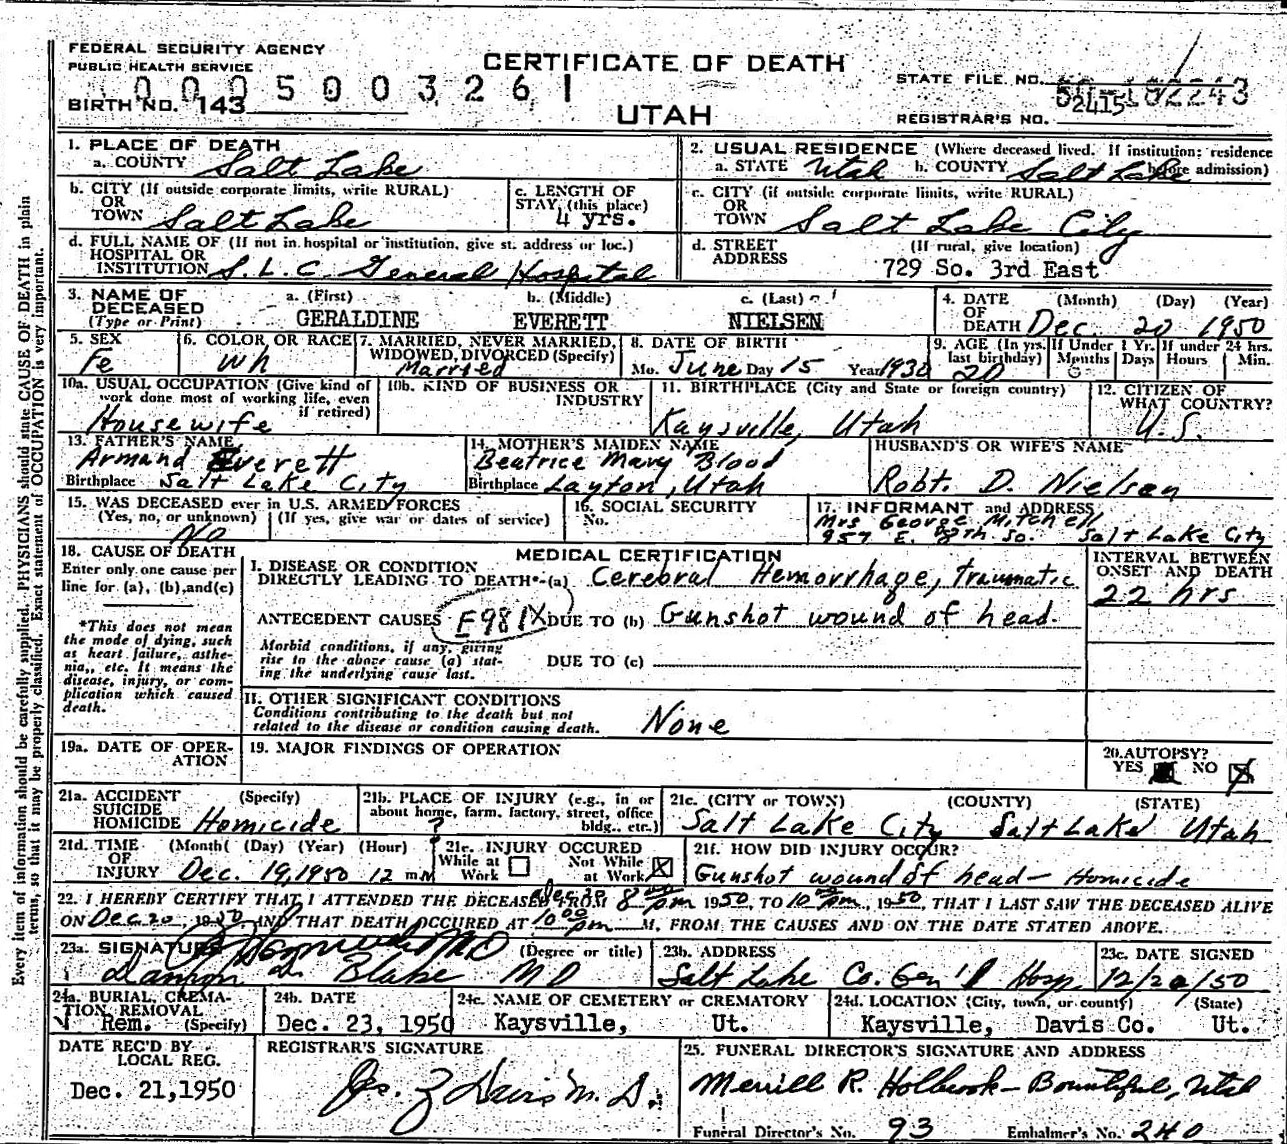 FEDERAL SECURITY AGENCY
PUBLIC HEALTH SERVICE
CERTIFICATE OF DEATH
UTAH
0005003261
BIRTH NO. 143
STATE FILE NO.
REGISTRAR'S NO. 2415
Every item of information should be carefully supplied. PHYSICIANS should state CAUSE OF DEATH in plain
terms, so that it may be properly classified. Exact statement of OCCUPATION is very important.
1. PLACE OF DEATH
a. COUNTY Salt Lake
2. USUAL RESIDENCE (Where deceased lived. If institution: residence
a. STATE Utah b. COUNTY Salt Lake before admission)
b. CITY (If outside corporate limits, write RURAL)
OR
TOWN Salt Lake
c. LENGTH OF
STAY (this place)
4 yrs.
c. CITY (if outside corporate limits, write RURAL)
OR
TOWN Salt Lake City
d. FULL NAME OF (If not in hospital or institution, give st. address or loc.)
HOSPITAL OR
INSTITUTION S.L.C. General Hospital
d. STREET (If rural, give location)
ADDRESS
729 So. 3rd East
3. NAME OF
DECEASED
(Type or Print)
a. (First) b. (Middle) c. (Last)
GERALDINE EVERETT NIELSEN
4. DATE (Month) (Day) (Year)
OF
DEATH Dec. 20 1950
5. SEX
Fe
6. COLOR OR RACE
Wh
7. MARRIED, NEVER MARRIED,
WIDOWED, DIVORCED (Specify)
Married
8. DATE OF BIRTH
Mo. June Day 15 Year 1930
9. AGE (In yrs. last birthday) 20
If Under 1 Yr. Months Days
If under 24 hrs. Hours Min.
10a. USUAL OCCUPATION (Give kind of
work done most of working life, even
if retired)
Housewife
10b. KIND OF BUSINESS OR
INDUSTRY
11. BIRTHPLACE (City and State or foreign country)
Kaysville, Utah
12. CITIZEN OF
WHAT COUNTRY?
U.S.
13. FATHER'S NAME
Armand Everett
Birthplace Salt Lake City
14. MOTHER'S MAIDEN NAME
Beatrice Mary Blood
Birthplace Layton, Utah
HUSBAND'S OR WIFE'S NAME
Robt. D. Nielsen
15. WAS DECEASED ever in U.S. ARMED FORCES
(Yes, no, or unknown) (If yes, give war or dates of service)
No
16. SOCIAL SECURITY
No.
17. INFORMANT and ADDRESS
Mrs George Mitchell
957 E. 8th So. Salt Lake City
18. CAUSE OF DEATH
Enter only one cause per
line for (a), (b), and (c)
*This does not mean
the mode of dying, such
as heart failure, asthe-
nia, etc. It means the
disease, injury, or com-
plication which caused
death.
MEDICAL CERTIFICATION
I. DISEASE OR CONDITION
DIRECTLY LEADING TO DEATH* (a) Cerebral Hemorrhage, traumatic
ANTECEDENT CAUSES E981X DUE TO (b) Gunshot wound of head.
Morbid conditions, if any, giving
rise to the above cause (a) stat-
ing the underlying cause last.
DUE TO (c)
INTERVAL BETWEEN
ONSET AND DEATH
22 hrs
II. OTHER SIGNIFICANT CONDITIONS
Conditions contributing to the death but not
related to the disease or condition causing death.
None
19a. DATE OF OPER-
ATION
19. MAJOR FINDINGS OF OPERATION
20. AUTOPSY?
YES NO X
21a. ACCIDENT (Specify)
SUICIDE
HOMICIDE Homicide
21b. PLACE OF INJURY (e.g., in or
about home, farm, factory, street, office
bldg., etc.)
?
21c. (CITY or TOWN) (COUNTY) (STATE)
Salt Lake City Salt Lake Utah
21d. TIME (Month) (Day) (Year) (Hour)
OF
INJURY Dec. 19, 1950 12 m N
21e. INJURY OCCURED
While at Work Not While at Work X
21f. HOW DID INJURY OCCUR?
Gunshot wound of head - Homicide
22. I HEREBY CERTIFY THAT I ATTENDED THE DECEASED FROM Dec 20 8 00 pm 1950, TO 10 00 pm, 1950, THAT I LAST SAW THE DECEASED ALIVE
ON Dec 20, 1950, AND THAT DEATH OCCURED AT 10 00 pm M. FROM THE CAUSES AND ON THE DATE STATED ABOVE.
23a. SIGNATURE (Degree or title)
Blake MD
23b. ADDRESS
Salt Lake Co. Gen'l Hosp.
23c. DATE SIGNED
12/20/50
24a. BURIAL, CREMA-
TION REMOVAL
Rem. (Specify)
24b. DATE
Dec. 23, 1950
24c. NAME OF CEMETERY or CREMATORY
Kaysville, Ut.
24d. LOCATION (City, town, or county) (State)
Kaysville, Davis Co. Ut.
DATE REC'D BY
LOCAL REG.
Dec. 21, 1950
REGISTRAR'S SIGNATURE
25. FUNERAL DIRECTOR'S SIGNATURE AND ADDRESS
Merrill R. Holbrook - Bountiful, Utah
Funeral Director's No. 93 Embalmer's No. 240